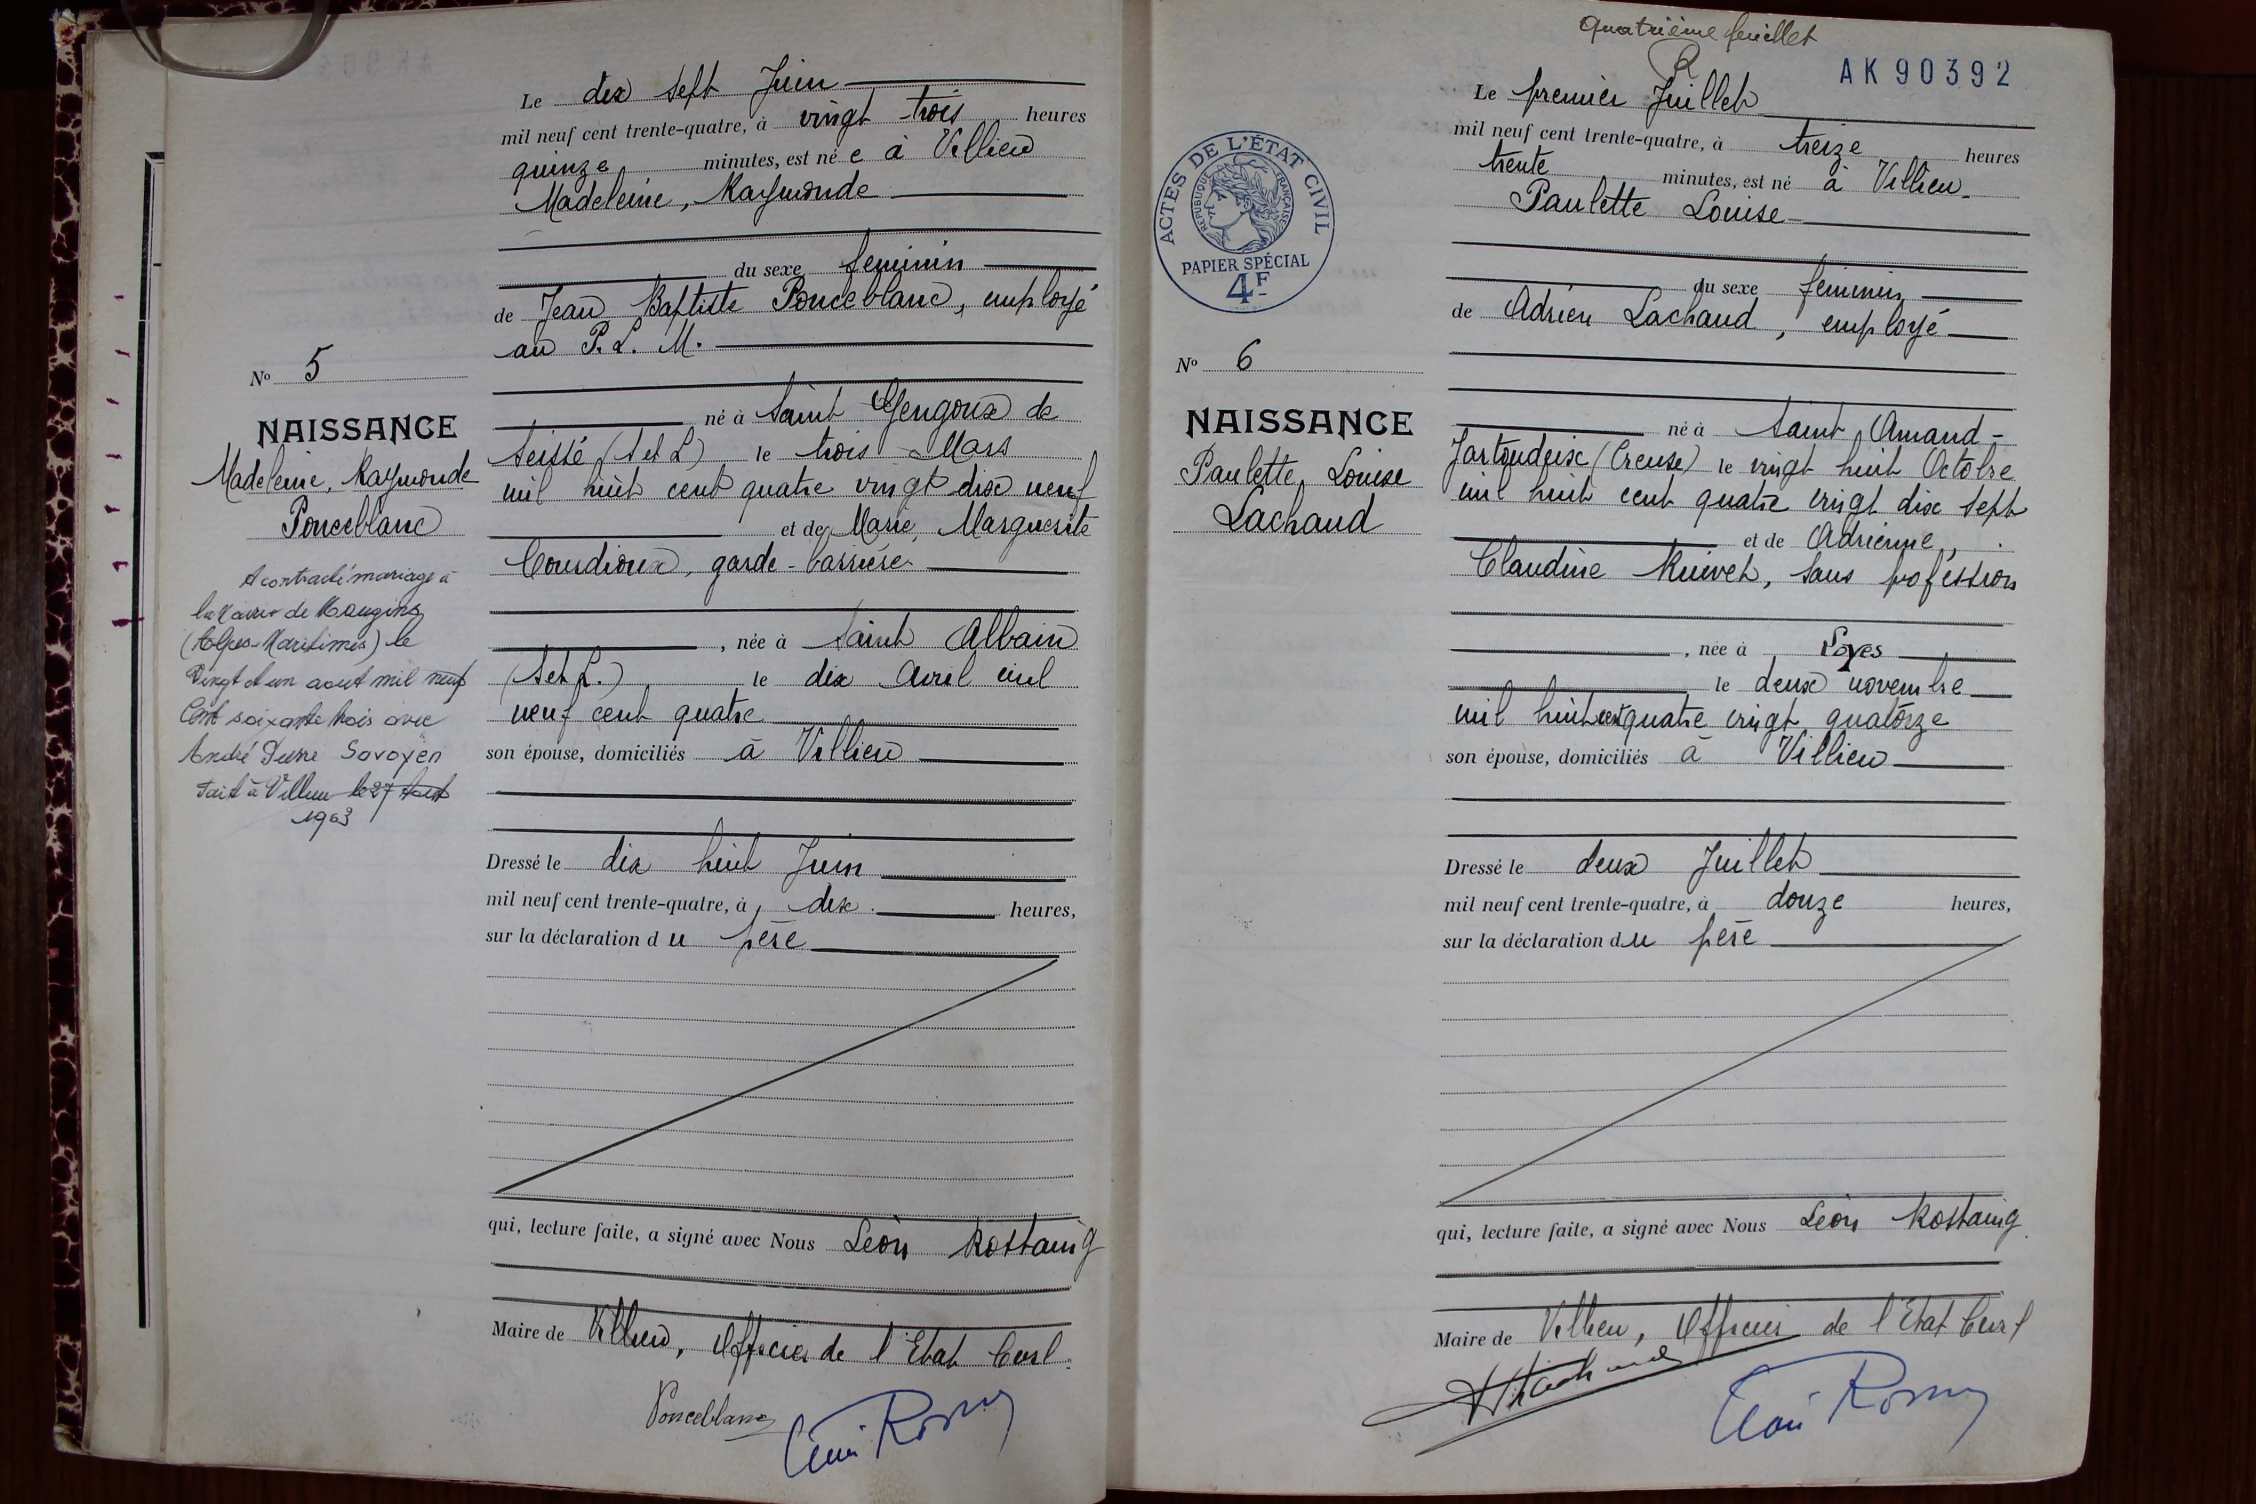 Le dix sept Juin
mil neuf cent trente-quatre, à vingt trois heures
quinze minutes, est né e à Villieu
Madeleine, Raymonde
du sexe feminin
de Jean Baptiste Ponceblanc, employé
au P. L. M.
né à Saint Gengoux de
Scissé (S et L) le trois Mars
mil huit cent quatre vingt dix neuf
et de Marie, Marguerite
garde-barrière
, née à Saint Albain
(S et L.) le dix Avril mil
neuf cent quatre
son épouse, domiciliés à Villieu
Dressé le dix huit Juin
mil neuf cent trente-quatre, à dix heures,
sur la déclaration d u père
qui, lecture faite, a signé avec Nous Léon Rostaing
Maire de Villieu, Officier de l'Etat Civil
Ponceblanc
No 5
NAISSANCE
Madeleine, Raymonde
Ponceblanc
A contracté mariage à
la Mairie de Mougins
(Alpes-Maritimes) le
Vingt et un août mil neuf
Cent soixante trois avec
André Savoyen
Fait à Villieu le 27 Août
1963
Quatrième feuillet
AK 90392
ACTES DE L'ÉTAT CIVIL
RÉPUBLIQUE FRANÇAISE
PAPIER SPÉCIAL
4F
No 6
NAISSANCE
Paulette, Louise
Lachaud
Le premier Juillet
mil neuf cent trente-quatre, à treize heures
trente minutes, est né à Villieu
Paulette Louise
du sexe féminin
de Adrien Lachaud, employé
né à Saint Amand-
Jartoudeix (Creuse) le vingt huit Octobre
mil huit cent quatre vingt dix sept
et de Adrienne,
Claudine sans profession
, née à Loyes
le deux novembre
mil huit cent quatre vingt quatorze
son épouse, domiciliés à Villieu
Dressé le deux Juillet
mil neuf cent trente-quatre, à douze heures,
sur la déclaration du père
qui, lecture faite, a signé avec Nous Léon Rostaing
Maire de Villieu, Officier de l'Etat Civil